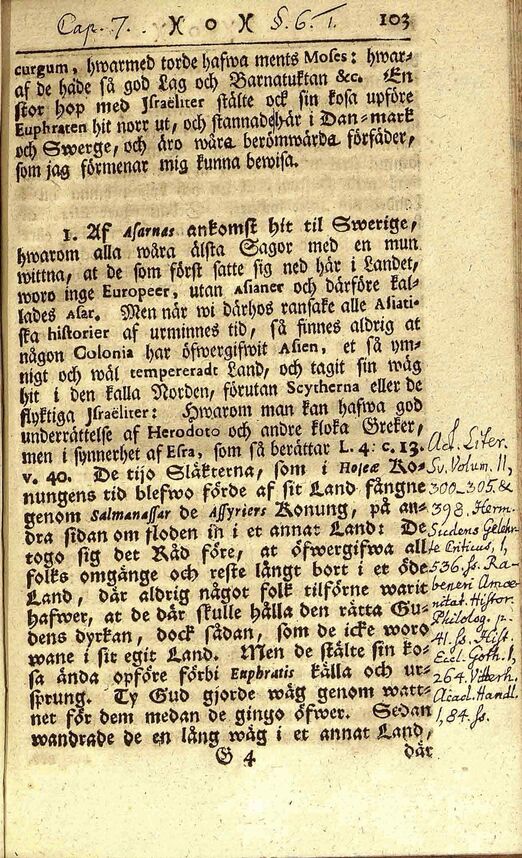 Cap. 7. )( o )( §. 6. 1. 103
curgum, hwarmed torde hafwa ments Moses: hwar-
af de håde så god Lag och Barnatuktan &c. En
stor hop med Israëliter stälte ock sin kosa upföre
Euphraten hit norr ut, och stannade här i Dan-mark
och Swerge, och äro wåra berömwärda förfäder,
som jag förmenar mig kunna bewisa.
1. Af Asarnas ankomst hit til Swerige,
hwarom alla wåra älsta Sagor med en mun
wittna, at de som först satte sig ned här i Landet,
woro inge Europeer, utan Asianer och därföre kal-
lades Asar. Men när wi därhos ransake alle Asiati-
ska historier af urminnes tid, så finnes aldrig at
någon Colonia har öfwergifwit Asien, et så ym-
nigt och wäl tempereradt Land, och tagit sin wäg
hit i den kalla Norden, förutan Scytherna eller de
flyktiga Israëliter: Hwarom man kan hafwa god
underrättelse af Herodoto och andre kloka Greker,
men i synnerhet af Esra, som så berättar L. 4: c. 13.
v. 40. De tijo Släkterna, som i Hoseæ Ko-
nungens tid blefwo förde af sit Land fångne
genom Salmanassar de Assyriers Konung, på an-
dra sidan om floden in i et annat Land: De
togo sig det Råd före, at öfwergifwa all
folks omgänge och reste långt bort i et öde
Land, där aldrig något folk tilförne warit
hafwer, at de där skulle hålla den rätta Gu-
dens dyrkan, dock sådan, som de icke woro
wane i sit egit Land. Men de stälte sin ko-
sa ända opföre förbi Euphratis källa och ur-
sprung. Ty Gud gjorde wäg genom watt-
net för dem medan de gingo öfwer. Sedan
wandrade de en lång wäg i et annat Land,
G 4 där
Act. Liter.
Sv. Volum. II,
300-305. &
398. Herm.
Sudens Gelehr-
te Criticus, 1,
536. ss. Ra-
beneri Amœ-
nitat. Histor.
Philolog. p.
41. ss. Hist.
Eccl. Goth. 1,
264. Vitterh.
Acad. Handl.
1, 84. ss.